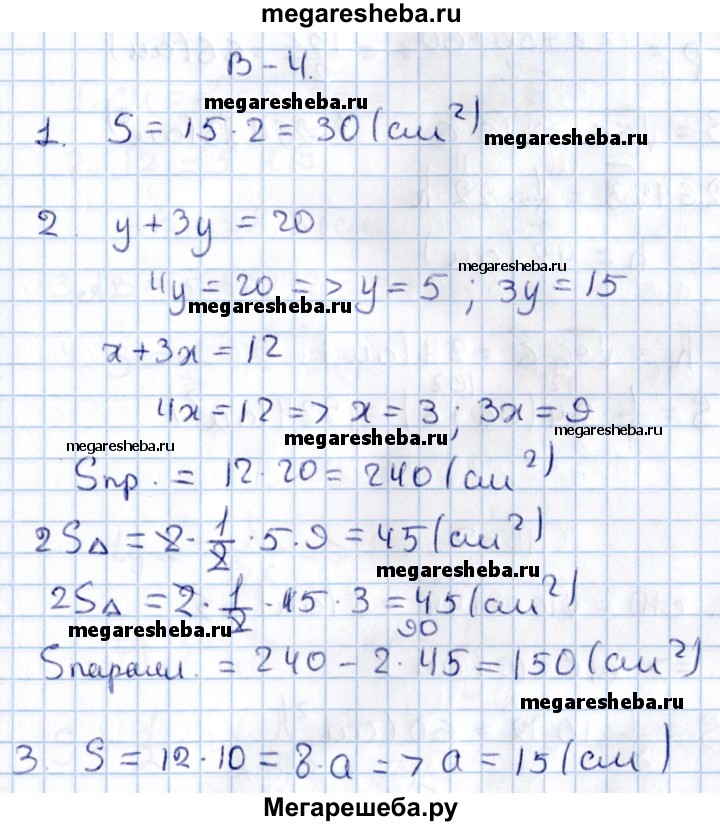 megaresheba.ru
В-4.
megaresheba.ru
1. S = 15 · 2 = 30 (см²)
megaresheba.ru
2. y + 3y = 20
megaresheba.ru
4y = 20 => y = 5 ; 3y = 15
megaresheba.ru
x + 3x = 12
4x = 12 => x = 3 ; 3x = 9
megaresheba.ru
megaresheba.ru
megaresheba.ru
Sпр. = 12 · 20 = 240 (см²)
2S△ = 2 · 1/2 · 5 · 9 = 45 (см²)
megaresheba.ru
2S△ = 2 · 1/2 · 15 · 3 = 45 (см²)
megaresheba.ru
90
Sпаралл. = 240 - 2 · 45 = 150 (см²)
megaresheba.ru
3. S = 12 · 10 = 8 · a => a = 15 (см)
Мегарешеба.ру